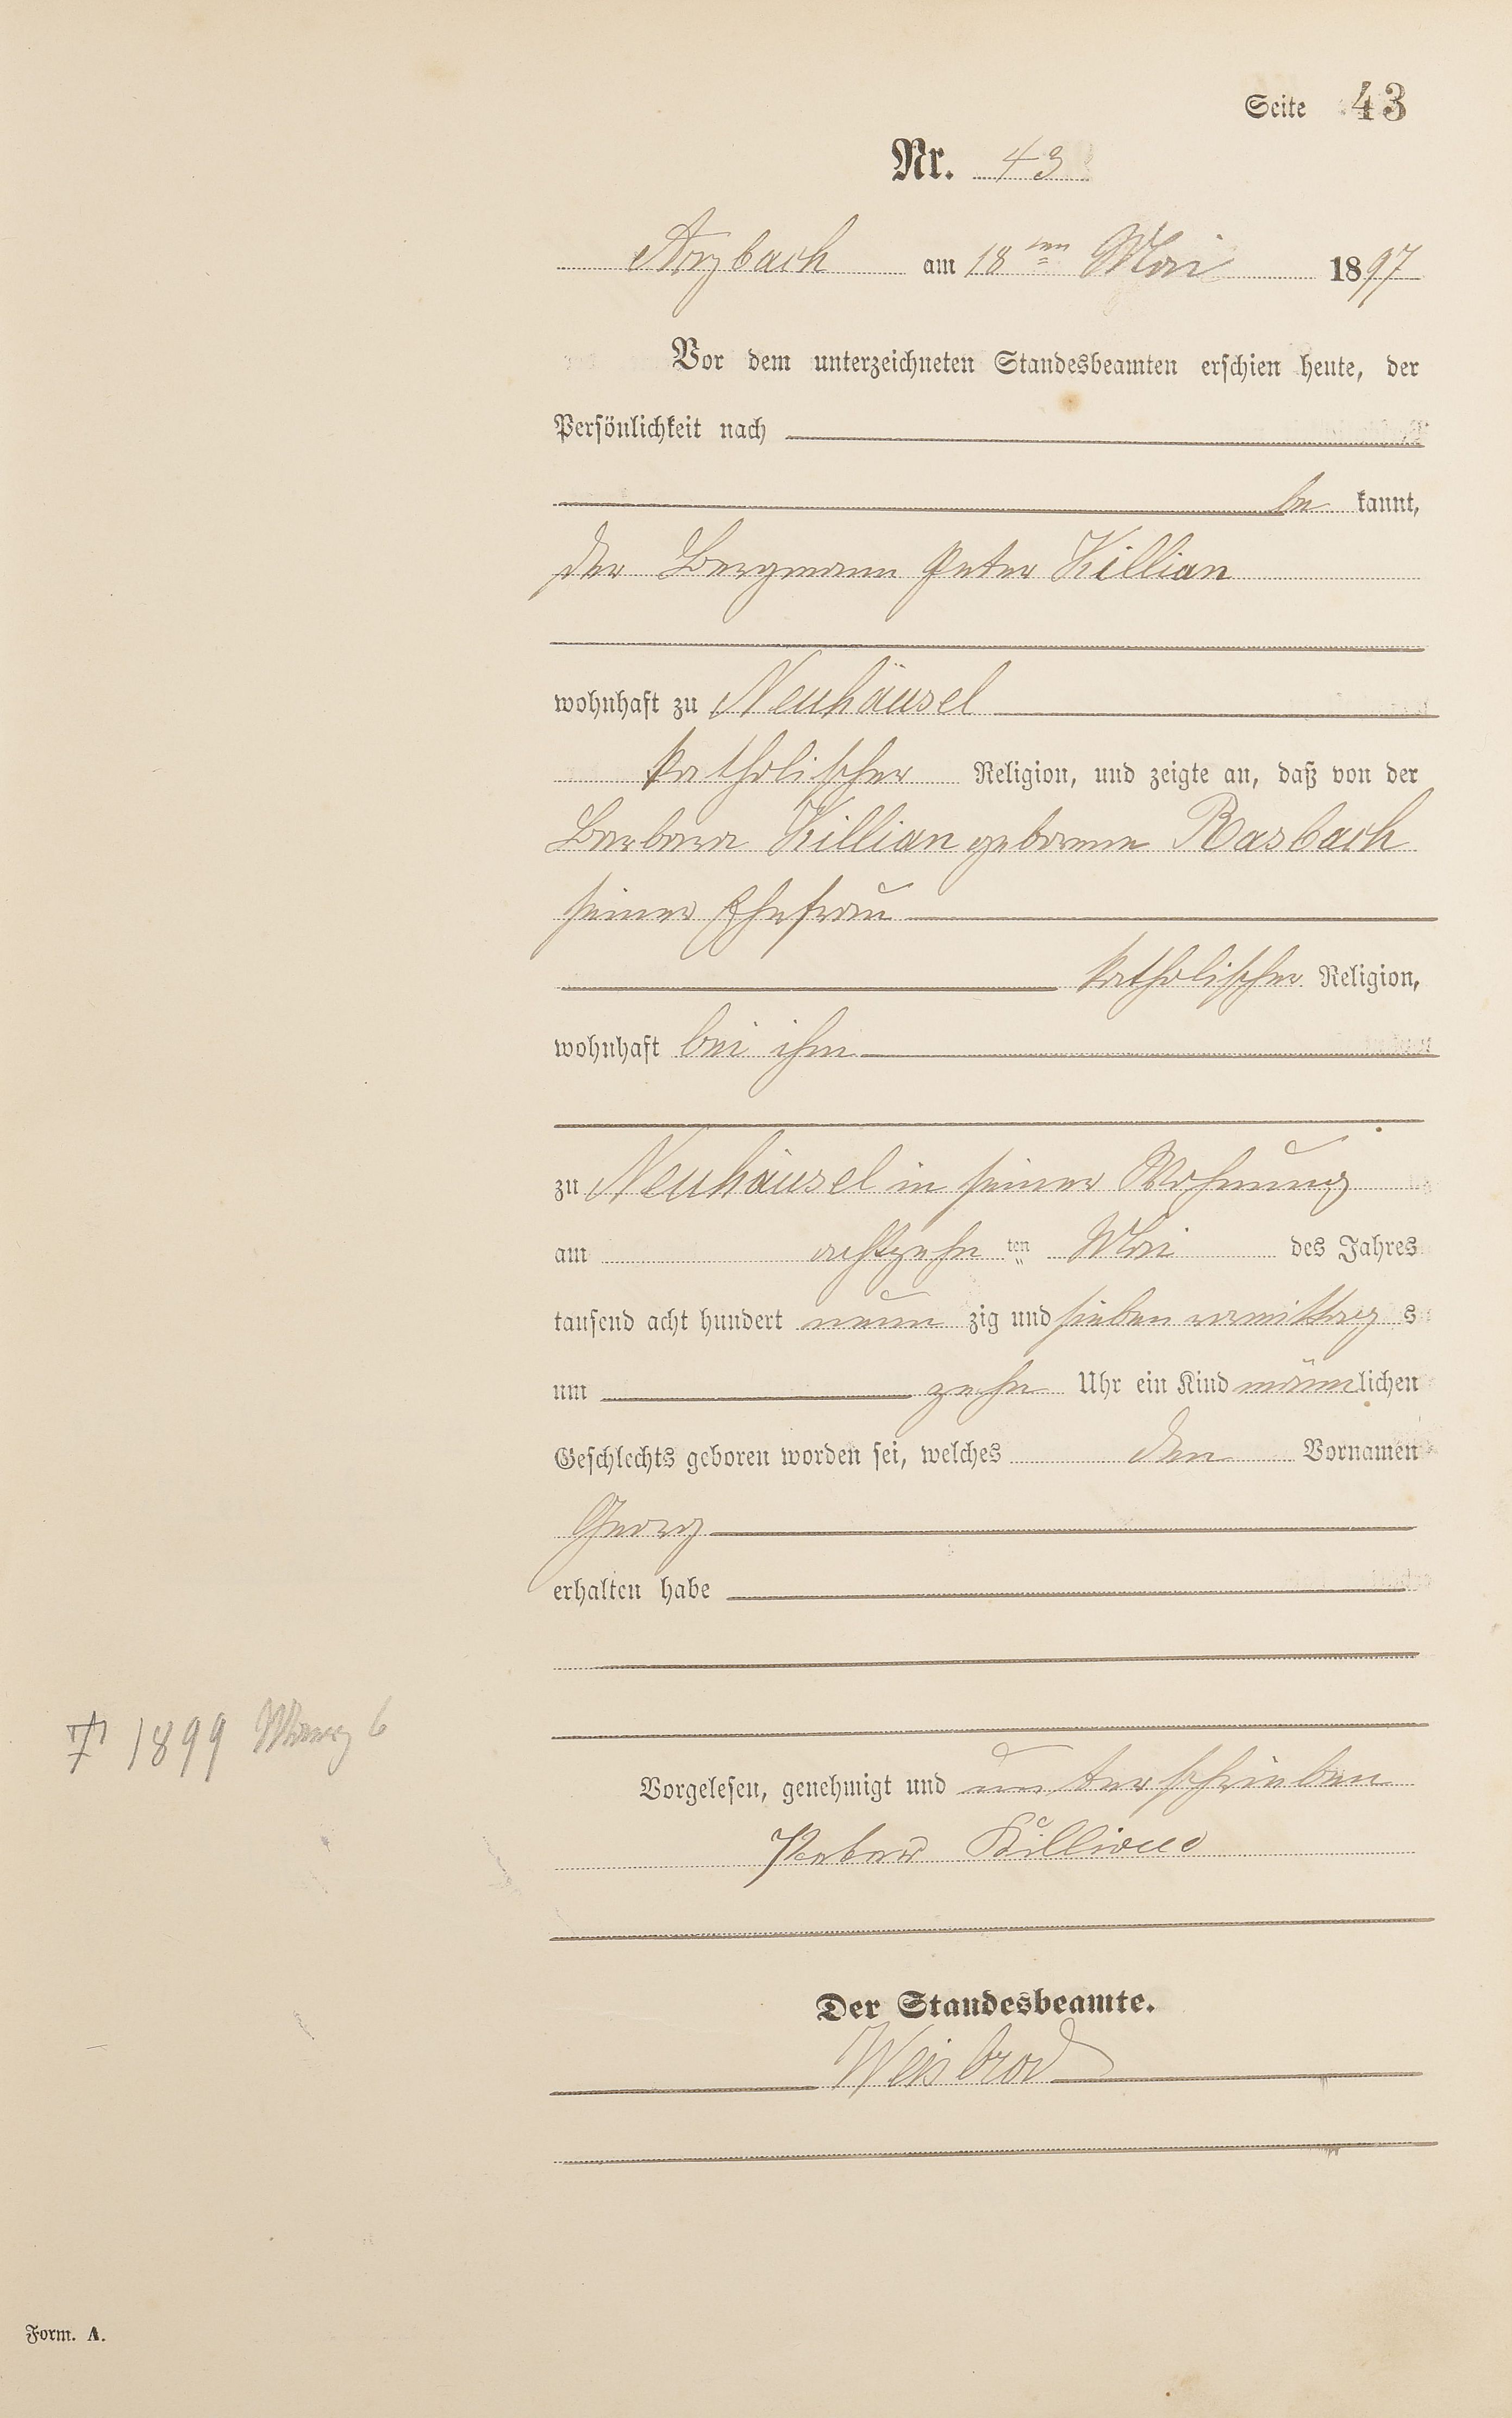 Seite 43
Nr. 43
Arzbach am 18ten Mai 1897
Vor dem unterzeichneten Standesbeamten erschien heute, der
Persönlichkeit nach
be kannt,
der Bergmann Peter Killian
wohnhaft zu Neuhäusel
katholischer Religion, und zeigte an, daß von der
Barbara Killian geborene Rasbach
seiner Ehefrau
katholischer Religion,
wohnhaft bei ihm
zu Neuhäusel in seiner Wohnung
am achtzehn ten Mai des Jahres
tausend acht hundert neun zig und sieben vormittag s
um zehn Uhr ein Kind männlichen
Geschlechts geboren worden sei, welches den Vornamen
Georg
erhalten habe
† 1899 März 6
Vorgelesen, genehmigt und unterschrieben
Peter Killian
Der Standesbeamte.
Weisbrod
Form. A.